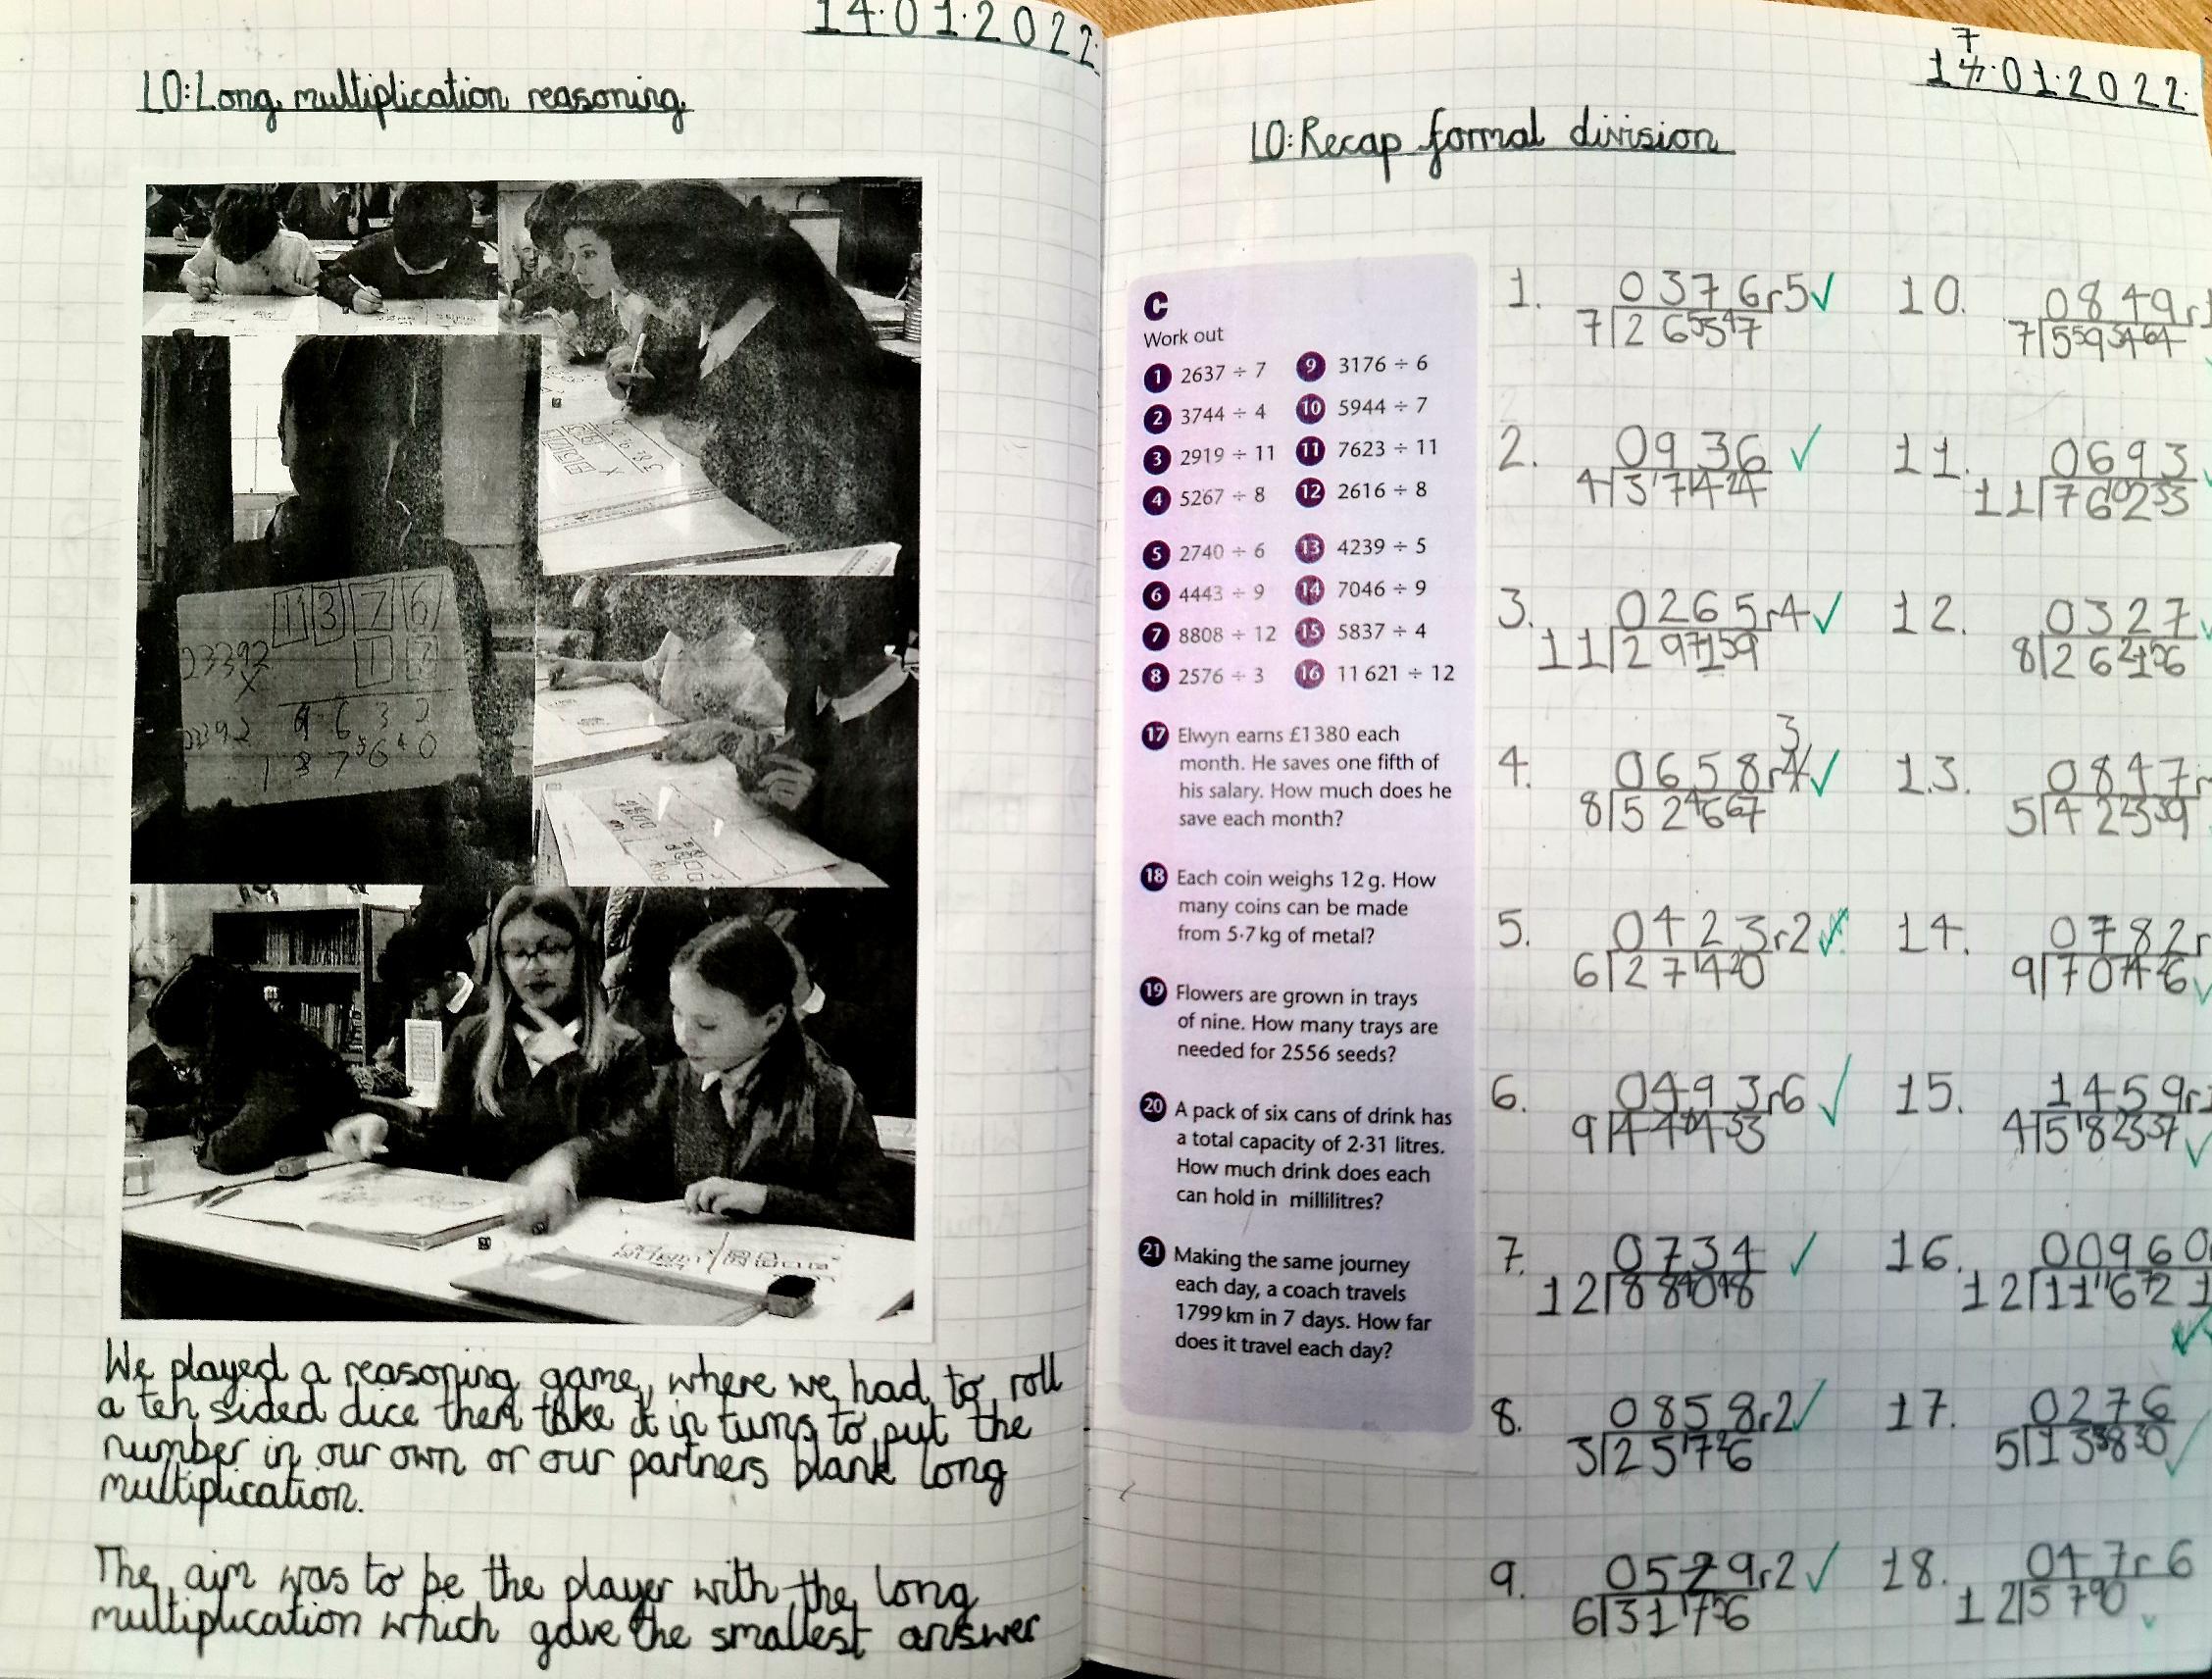 14.01.2022
LO: Long multiplication reasoning
1 3 7 6
We played a reasoning game, where we had to roll
a ten sided dice then take it in turns to put the
number in our own or our partners blank long
multiplication.
The aim was to be the player with the long
multiplication which gave the smallest answer
7
14.01.2022
LO: Recap formal division
C
Work out
1 2637 ÷ 7
2 3744 ÷ 4
3 2919 ÷ 11
4 5267 ÷ 8
5 2740 ÷ 6
6 4443 ÷ 9
7 8808 ÷ 12
8 2576 ÷ 3
9 3176 ÷ 6
10 5944 ÷ 7
11 7623 ÷ 11
12 2616 ÷ 8
13 4239 ÷ 5
14 7046 ÷ 9
15 5837 ÷ 4
16 11 621 ÷ 12
17 Elwyn earns £1380 each
month. He saves one fifth of
his salary. How much does he
save each month?
18 Each coin weighs 12 g. How
many coins can be made
from 5·7 kg of metal?
19 Flowers are grown in trays
of nine. How many trays are
needed for 2556 seeds?
20 A pack of six cans of drink has
a total capacity of 2·31 litres.
How much drink does each
can hold in millilitres?
21 Making the same journey
each day, a coach travels
1799 km in 7 days. How far
does it travel each day?
1. 0376r5 ✓
7 2 6 55 47
2. 0936 ✓
4 3 17 14 24
3. 0265r4 ✓
11 2 9 71 59
4. 0658r3 ✓
8 5 2 46 67
5. 0423r2
6 2 7 14 20
6. 0493r6 ✓
9 4 4 84 33
7. 0734 ✓
12 8 8 40 48
8. 0858r2 ✓
3 2 5 17 26
9. 0529r2 ✓
6 3 1 17 56
10. 0849r
7 5 59 34 64
11. 0693
11 7 6 102 33
12. 0327
8 2 6 21 56
13. 0847r
5 4 2 23 39
14. 0782r
9 7 0 74 26
15. 1459r
4 5 18 23 37
16. 00960
12 1 1 116 72 1
17. 0276
5 1 3 38 30
18. 047r6
12 5 7 90